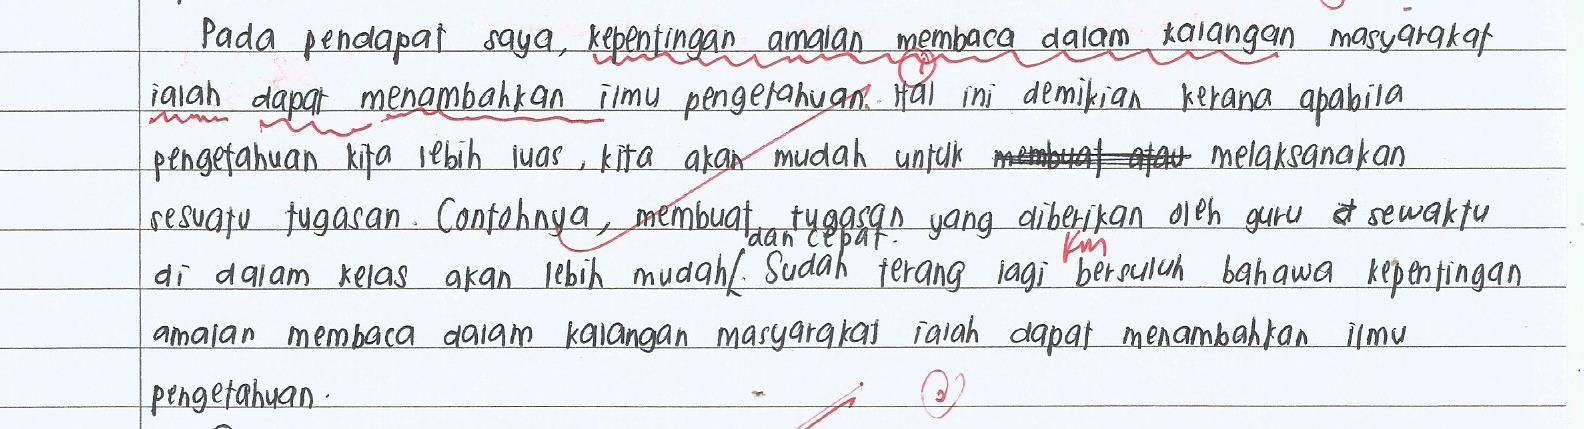 Pada pendapat saya, kepentingan amalan membaca dalam kalangan masyarakat
ialah dapat menambahkan ilmu pengetahuan. Hal ini demikian kerana apabila
pengetahuan kita lebih luas, kita akan mudah untuk membuat atau melaksanakan
sesuatu tugasan. Contohnya, membuat tugasan yang diberikan oleh guru sewaktu
dan cepat.
Km
di dalam kelas akan lebih mudah. Sudah terang lagi bersuluh bahawa kepentingan
amalan membaca dalam kalangan masyarakat ialah dapat menambahkan ilmu
pengetahuan.